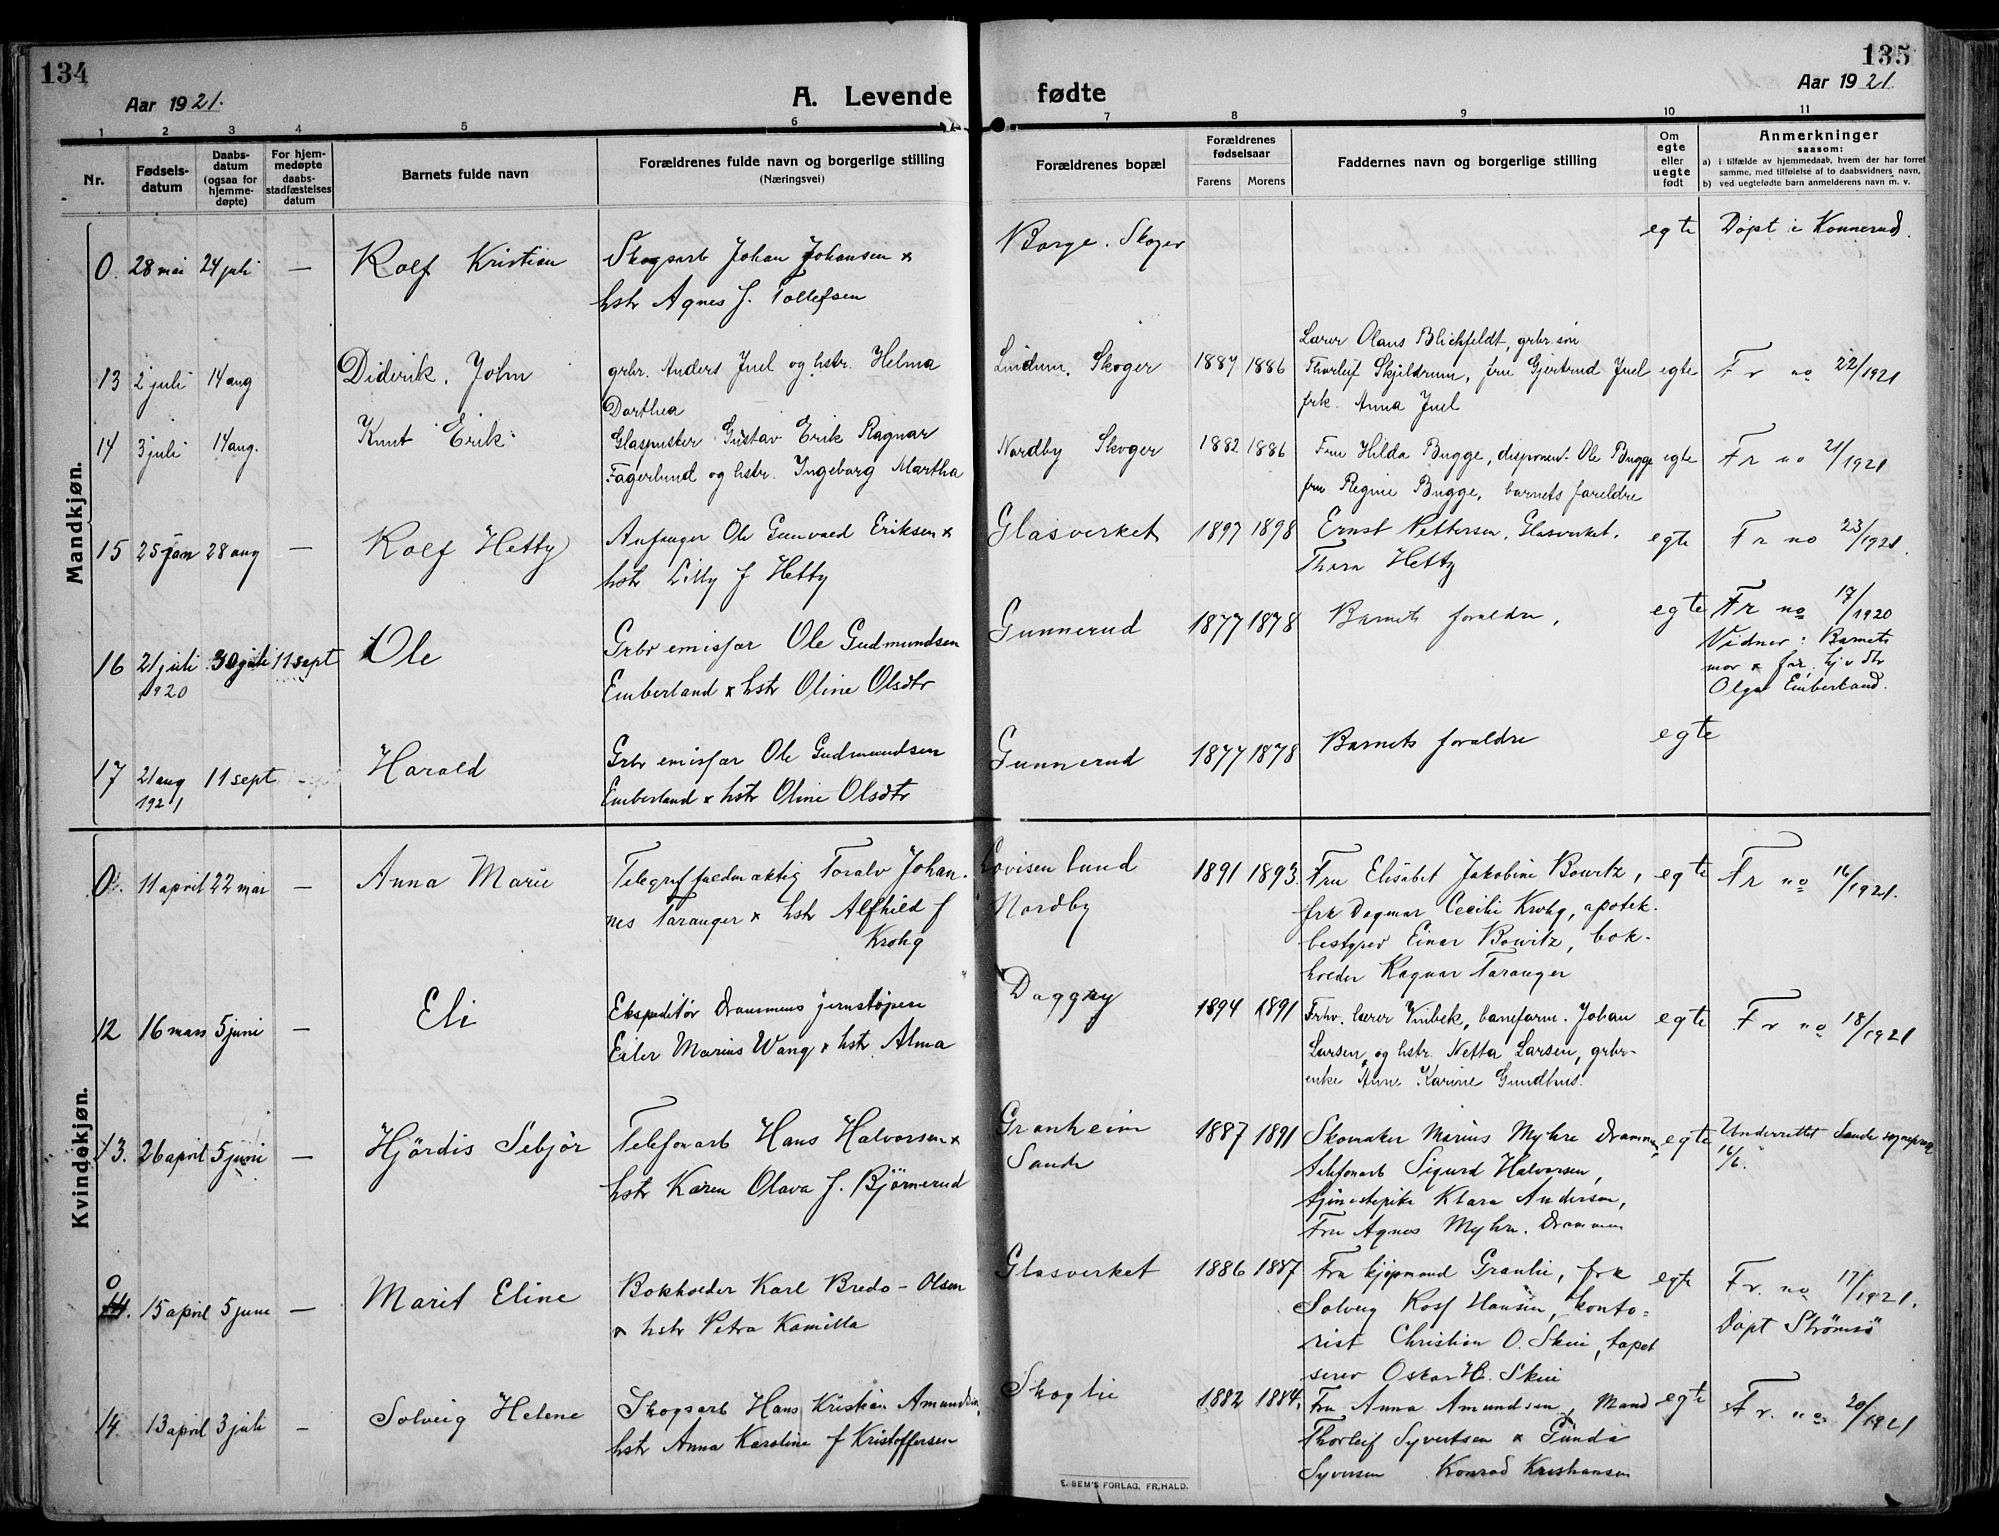 134
Aar 1921.
A. Levende
1 2 3 4 5 6
Nr.
Fødsels-
datum
Daabs-
datum
(ogsaa for
hjemme-
døpte)
For hjem-
medøpte
daabs-
stadfæstelses
datum
Barnets fulde navn
Forældrenes fulde navn og borgerlige stilling
(Næringsvei)
135
Aar 1921
fødte
7 8 9 10 11
Forældrenes bopæl
Forældrenes
fødselsaar
Farens Morens
Faddernes navn og borgerlige stilling
Om
egte
eller
uegte
født
Anmerkninger
saasom:
a) i tilfælde av hjemmedaab, hvem der har forret
samme, med tilføielse af to daabsvidners navn,
b) ved uegtefødte barn anmelderens navn m. v.
Mandkjøn.
0. 28 mai 24 juli — Rolf Kristian
Skogsarb Johan Johansen x
hstr Agnes f. Tollefsen
Borge. Skoger
egte
Døpt i Konnerud.
13 2 juli 14 aug Diderik. John
grbr. Anders Juel og hstr. Helma
Dorthea
Lindum. Skoger 1887 1886
Lærer Olaus Blichfeldt, grbr. søn
Thorleif Skjeldrum, fru Gjertrud Juel egte
frk. Anna Juel
Fr no 22/1921
14 3 juli 14 aug. Knut Erik
Glaspuster Gustav Erik Ragnar
Fagerlund og hstr. Ingeborg Martha
Nordby Skoger 1882 1886
Fru Hilda Bugge, disponent Ole Bugge egte
fru Regine Bugge, barnets foreldre
Fr no 21/1921
15 25 jan 28 aug — Rolf Hetty
Anfanger Ole Gunvald Eriksen x
hstr Lilly f Hetty
Glasverket 1897 1898
Ernst Pettersen, Glasverket,
Thora Hetty
egte
Fr no 23/1921.
16 21 juli 30 juli 11 sept Ole
1920
Grbr emisfær Ole Gudmundsen
Emberland x hstr Oline Olsdtr
Gunnerud 1877 1878
Barnets foraldre,
egte
Fr no 17/1920
Vidner: Barnets
mor x far.
Olga Emberland.
17 21 aug 11 sept — Harald
1921
Grbr emisfær Ole Gudmundsen
Emberland x hstr Oline Olsdtr
Gunnerud 1877 1878
Barnets foraldre
egte
Kvindekjøn.
0. 11 april 22 mai — Anna Marie
Telegraffuldmæktig Toralv Johan-
nes Taranger x hstr Alfhild f
Krohg
Lovisenlund
Nordby
1891 1893
Fru Elisabet Jakobine Bowitz,
frk Dagmar Cecilie Krohg, apotek-
bestyrer Einar Bowitz, bok-
holder Ragnar Taranger
egte
Fr no 16/1921.
12 16 mars 5 juni — Eli
Ekspeditør Drammens jernstøperi
Eiler Marius Wang x hstr Alma
Daggry 1894 1891
Frhv. lærer Vinbek, baneform. Johan
Larsen, og hstr. Netta Larsen, grbr-
enke Anne Karine Gundhus.
egte
Fr no 18/1921
13. 26 april 5 juni — Hjördis Sebjør
Telefonarb Hans Halvorsen x
hstr Karen Olava f. Björnerud
Granheim
Sande
1887 1891
Skomaker Marius Myhre Drammen,
telefonarb Sigurd Halvorsen,
tjenestepike Klara Andersen,
Fru Agnes Myhre. Drammen
egte
Underrettet Sande sogneprest
16/6.
0
14. 15 april 5 june — Marit Eline
Bokholder Karl Bredo-Olsen
x hstr Petra Kamilla
Glasverket 1886 1887
Fru kjøpmand Granlie, frk
Solveig Rosf Hansen, konto-
rist Christian O. Skui, tapet
serer Oskar H. Skui
egte
Fr. no 17/1921.
Døpt Strømsø
14 13 april 3 juli — Solveig Helene
Skogsarb Hans Kristian Amundsen,
hstr Anna Karoline f Kristoffersen
Skoglie 1882 1884.
Fru Anna Amundsen,
Thorleif Syvertsen x Gunda
Syversen Konrad Kristiansen
egte
Fr. no 20/1921
E. SEM'S FORLAG, FR.HALD.